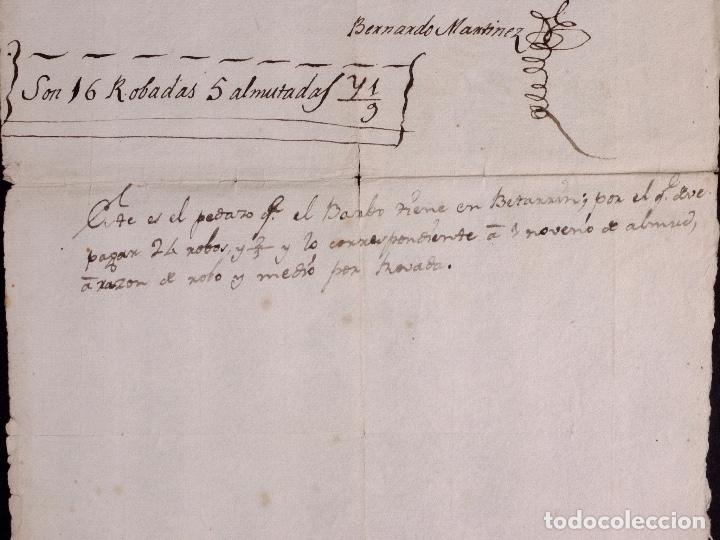 Bernardo Martinez
Son 16 Robadas 5 almutadas y 1/9
Este es el pedazo q.e el Bardo tiene en Betarrin; por el q.e deve
pagar 24 robos, y 2/3 y lo correspondiente â 1 noveno de almud,
â razon de robo y medio por Rovada.
todocoleccion
todocoleccion.net